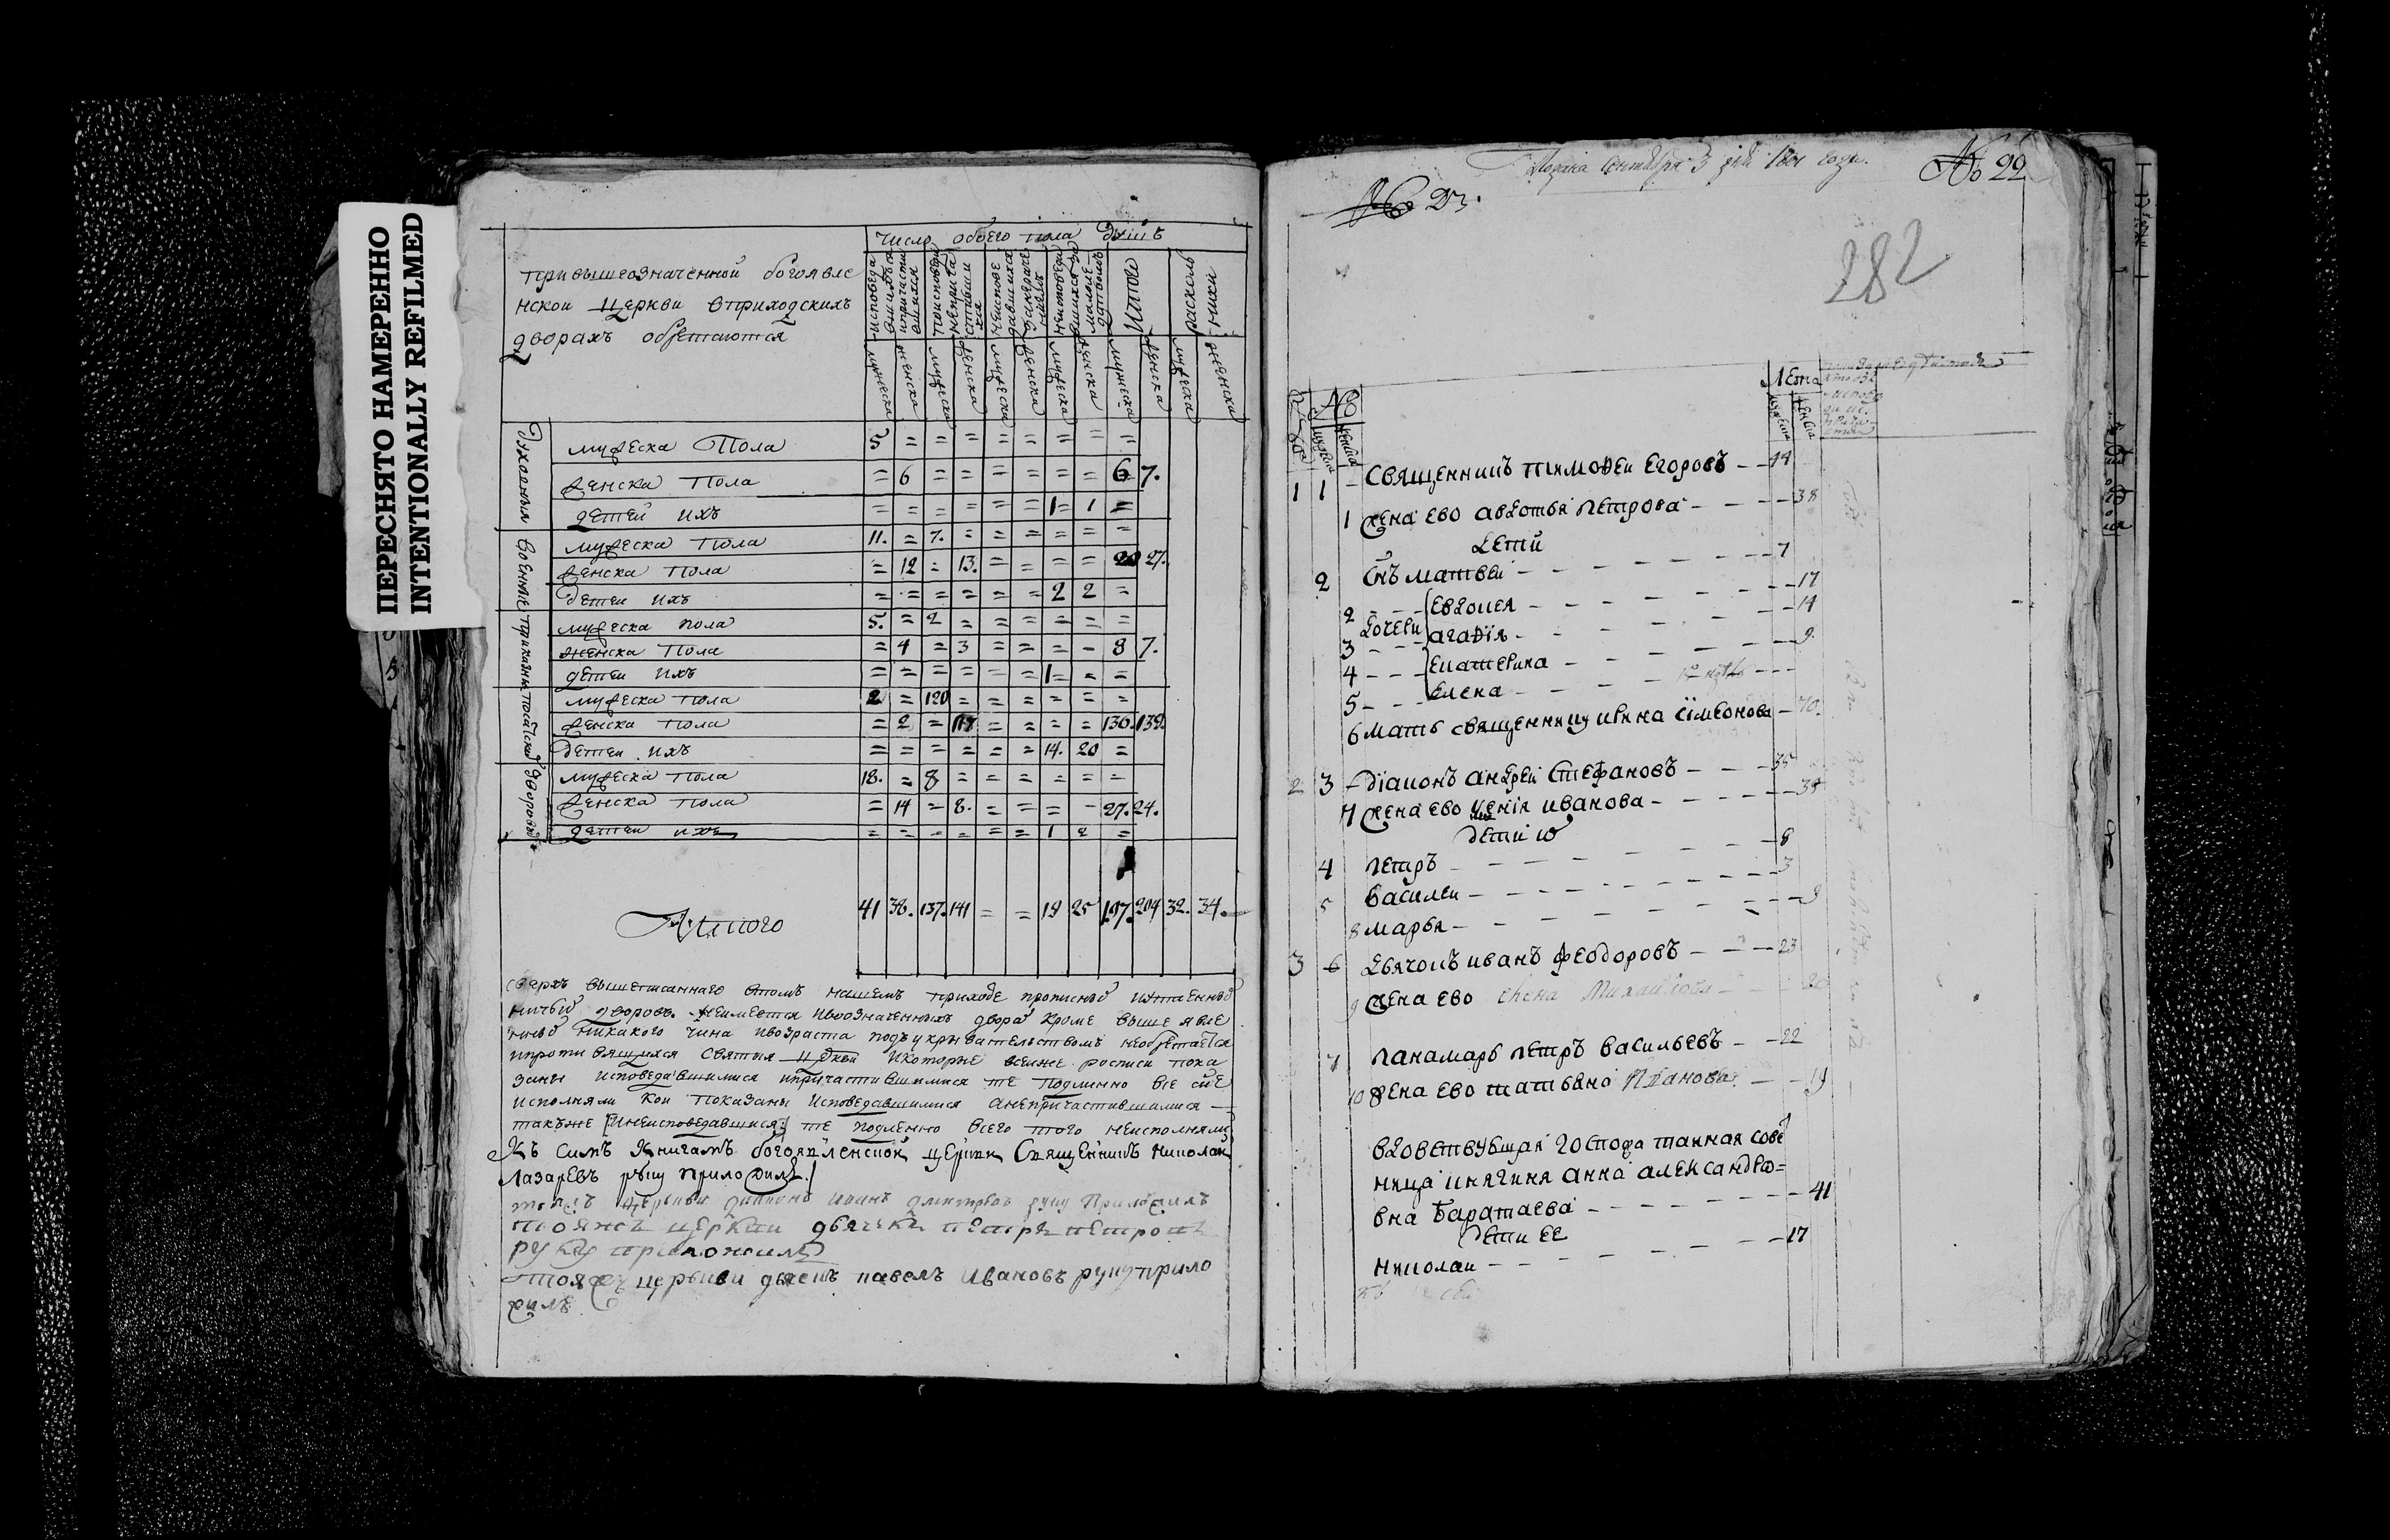 ПЕРЕСНЯТО НАМЕРЕННО
INTENTIONALLY REFILMED
число обоего пола душъ
при вышеозначенной богоявле
нской церкви вприходскихъ
дворахъ обретаются
Итого
расколь
ники
мужеска
женска
мужеска
женска
мужеска
женска
мужеска
женска
мужеска
женска
мужеска
женска
Духовныя
мужеска пола 5 = = = = = = = =
женска пола = 6 = = = = = = 6 7.
детей ихъ = = = = = = 1 = 1 =
военные
мужеска пола 11. = 7. = = = = = =
женска пола = 12 = 13. = = = = 20 27.
детеи ихъ = = = = = = 2 2 =
приказны
мужеска пола 5. = 2 = = = = = =
женска пола = 4 = 3 = = = - 8 7.
детеи ихъ = = = = = = 1 = = =
посацкия
мужеска пола 2 = 120 = = = = = =
женска пола = 2 = 117 = = = = 136. 139.
детеи ихъ = = = = = = 14. 20 =
дворовы
мужеска пола 18. = 8 = = = = = =
женска пола = 14 = 8. = = = - 27. 24.
детеи ихъ = = = = = = 1 2 =
Итого 41 38. 137. 141 = = 19 25 197. 204 32. 34.
сверхъ вышеписаннаго втомъ нашемъ приходе прописныхъ иутаенныхъ
ничьихъ дворовъ неимеется ивоозначенныхъ дворах кроме выше явле
ныхъ никакого чина ивозраста подъукрывательствомъ необретается
ипротивящихся святыя церкви икоторые всеиже росписи пока
заны исповедавшимися ипричастившимися те подлинно все сие
исполняли кои показаны исповедавшимися анепричастившимися
такъже [инеисповедавшися] те подленно всего того неисполняли
Къ симъ книгамъ богоявленской церкви Священникъ николай
Лазаревъ руку приложилъ.
церькви диаконъ иванъ дмитревъ руку приложилъ
тояжъ церкви дьячекъ петръ петровъ
руку приложилъ
тояжъ церькви дьячекъ павелъ ивановъ руку прило
жилъ
Подана сентября 3 дня 1801 года.
№ 22
№ 23.
282
№
Лета
мужеска
женска
1 1 Священникъ тимофеи егоровъ 44
1 жена ево авдотья петрова 38
дети
2 Снъ матвеи 7
2 евдокея 17
дочери
3 агафiя 14
4 екатерина 9
5 елена
6 мать священнику ирина сiмеонова 70.
2 3 дiаконъ андреи стефановъ 35
7 жена ево ксенiя иванова 34
дети их
4 петръ 8
5 василеи 3
8 марья 9
3 6 дьячокъ иванъ феодоровъ 23
9 жена ево елена Михайлова 20
7 панамарь петръ васильевъ 22
10 жена ево татьяна Иванова 19
вдовствующая госпожа танная сове
ница княгиня анна александро=
вна баратаева 41
дети ее
николаи 17